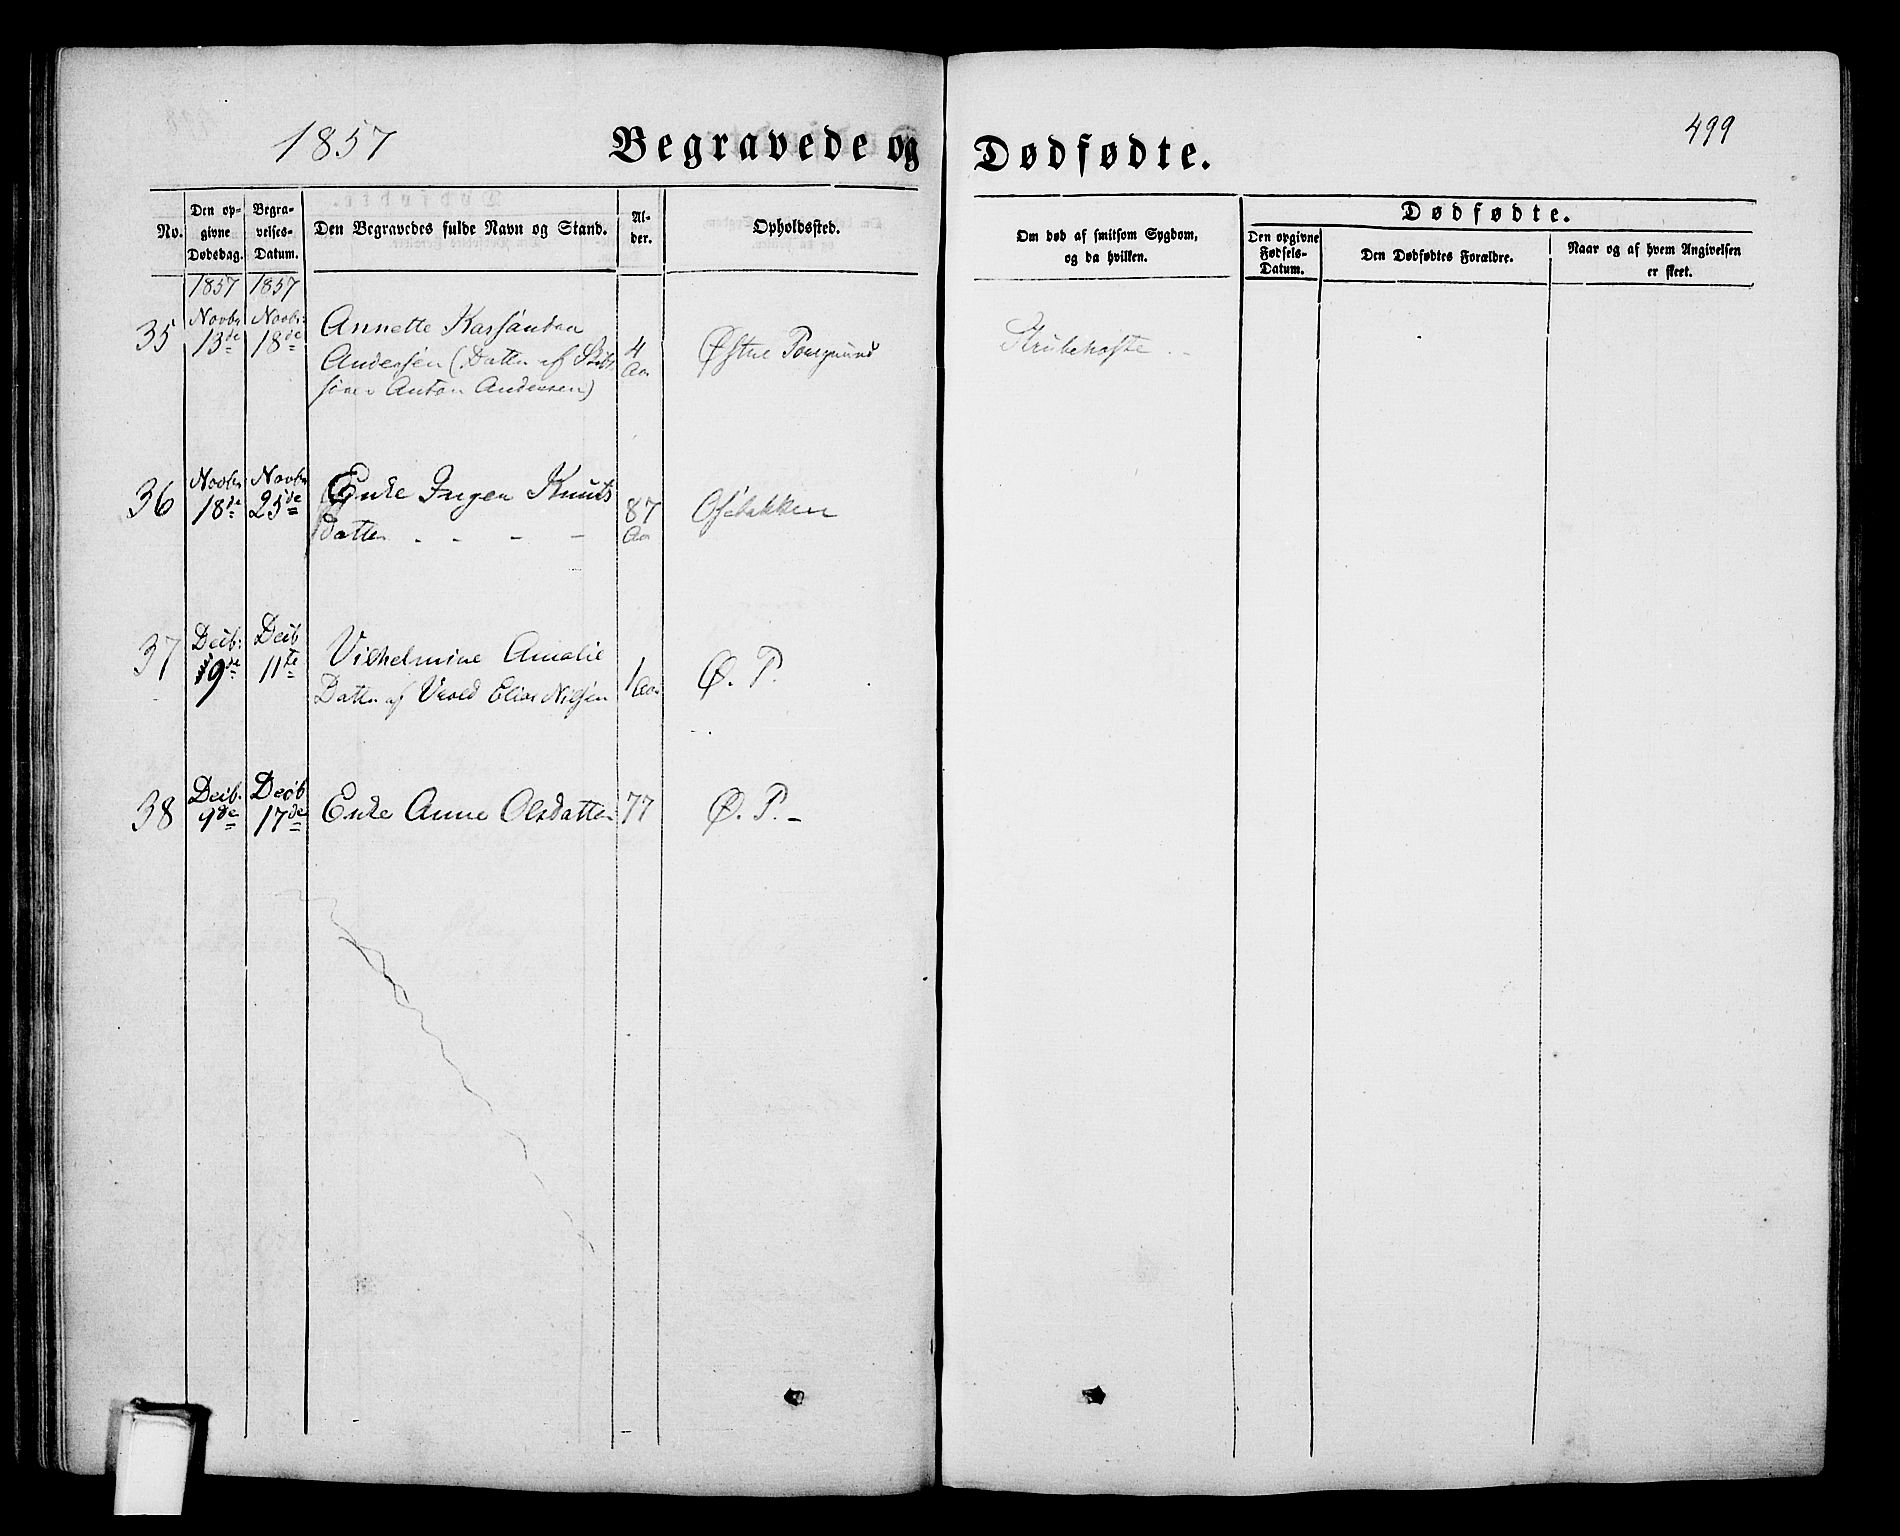 1857 Begravede og Dødfødte. 499
No. Den op- givne Dødsdag. Begra- velses- Datum. Den Begravedes fulde Navn og Stand. Al- der. Opholdssted. Om død af smitsom Sygdom, og da hvilken. Dødfødte.
Den opgivne Fødsels- Datum. Den Dødfødtes Forældre. Naar og af hvem Angivelsen er skeet.
1857 1857
35 Novbr 13de Novbr 18de Annette Kassandra
Andersen (Datter af Skibs 4 Aar Østre Porsgrund Strubehoste
fører Anton Andersen)
36 Novbr 18de Novbr 25de Enke Inger Knuts
datter - - - - 87 Aar Osebakken
37 Decb: 9de Decb 11te Vilhelmine Amalie
Datter af Elias Nilsen 1 Aar Ø. P.
38 Decb. 9de Decb 17de Enke Anne Olsdatter 77 Ø. P. -